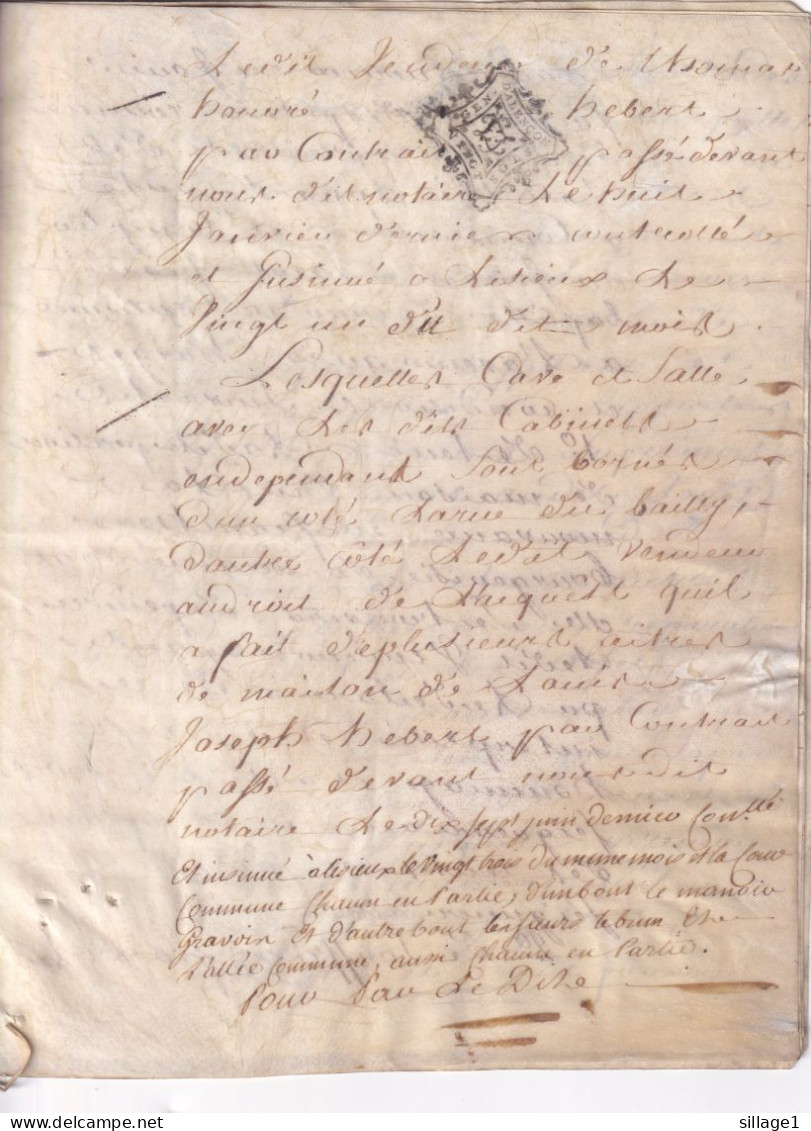 Ledit vendeur de Thomas
honoré hebert
par Contrait passé devant
nous dit notaire Le huit
Janvier dernier controllé
et Jnsinué a Lisieux Le
Vingt un du dit mois.
Lesquelles Cave et Salle
avec Les dits Cabinets
en dependant Sont bornés
dun coté Larue du bailly,
dautre côté Ledit Vendeur
audroit de Laquest quil
a fait de plusieurs aitres
de maison de Louis
Joseph hebert par Contrat
passé devant nous dit
notaire Le dix sept juin dernier Con.llé
Et insinué à lisieux le Vingt trois du meme mois et la Cour
Commune Chacun en Partie, d'un bout le
Et d'autre bout les sieurs lebrun Et
Vallée Commune, aussi Chacun en Partie.
Pour Par Le Dite
GEN DALENCON
sillage1